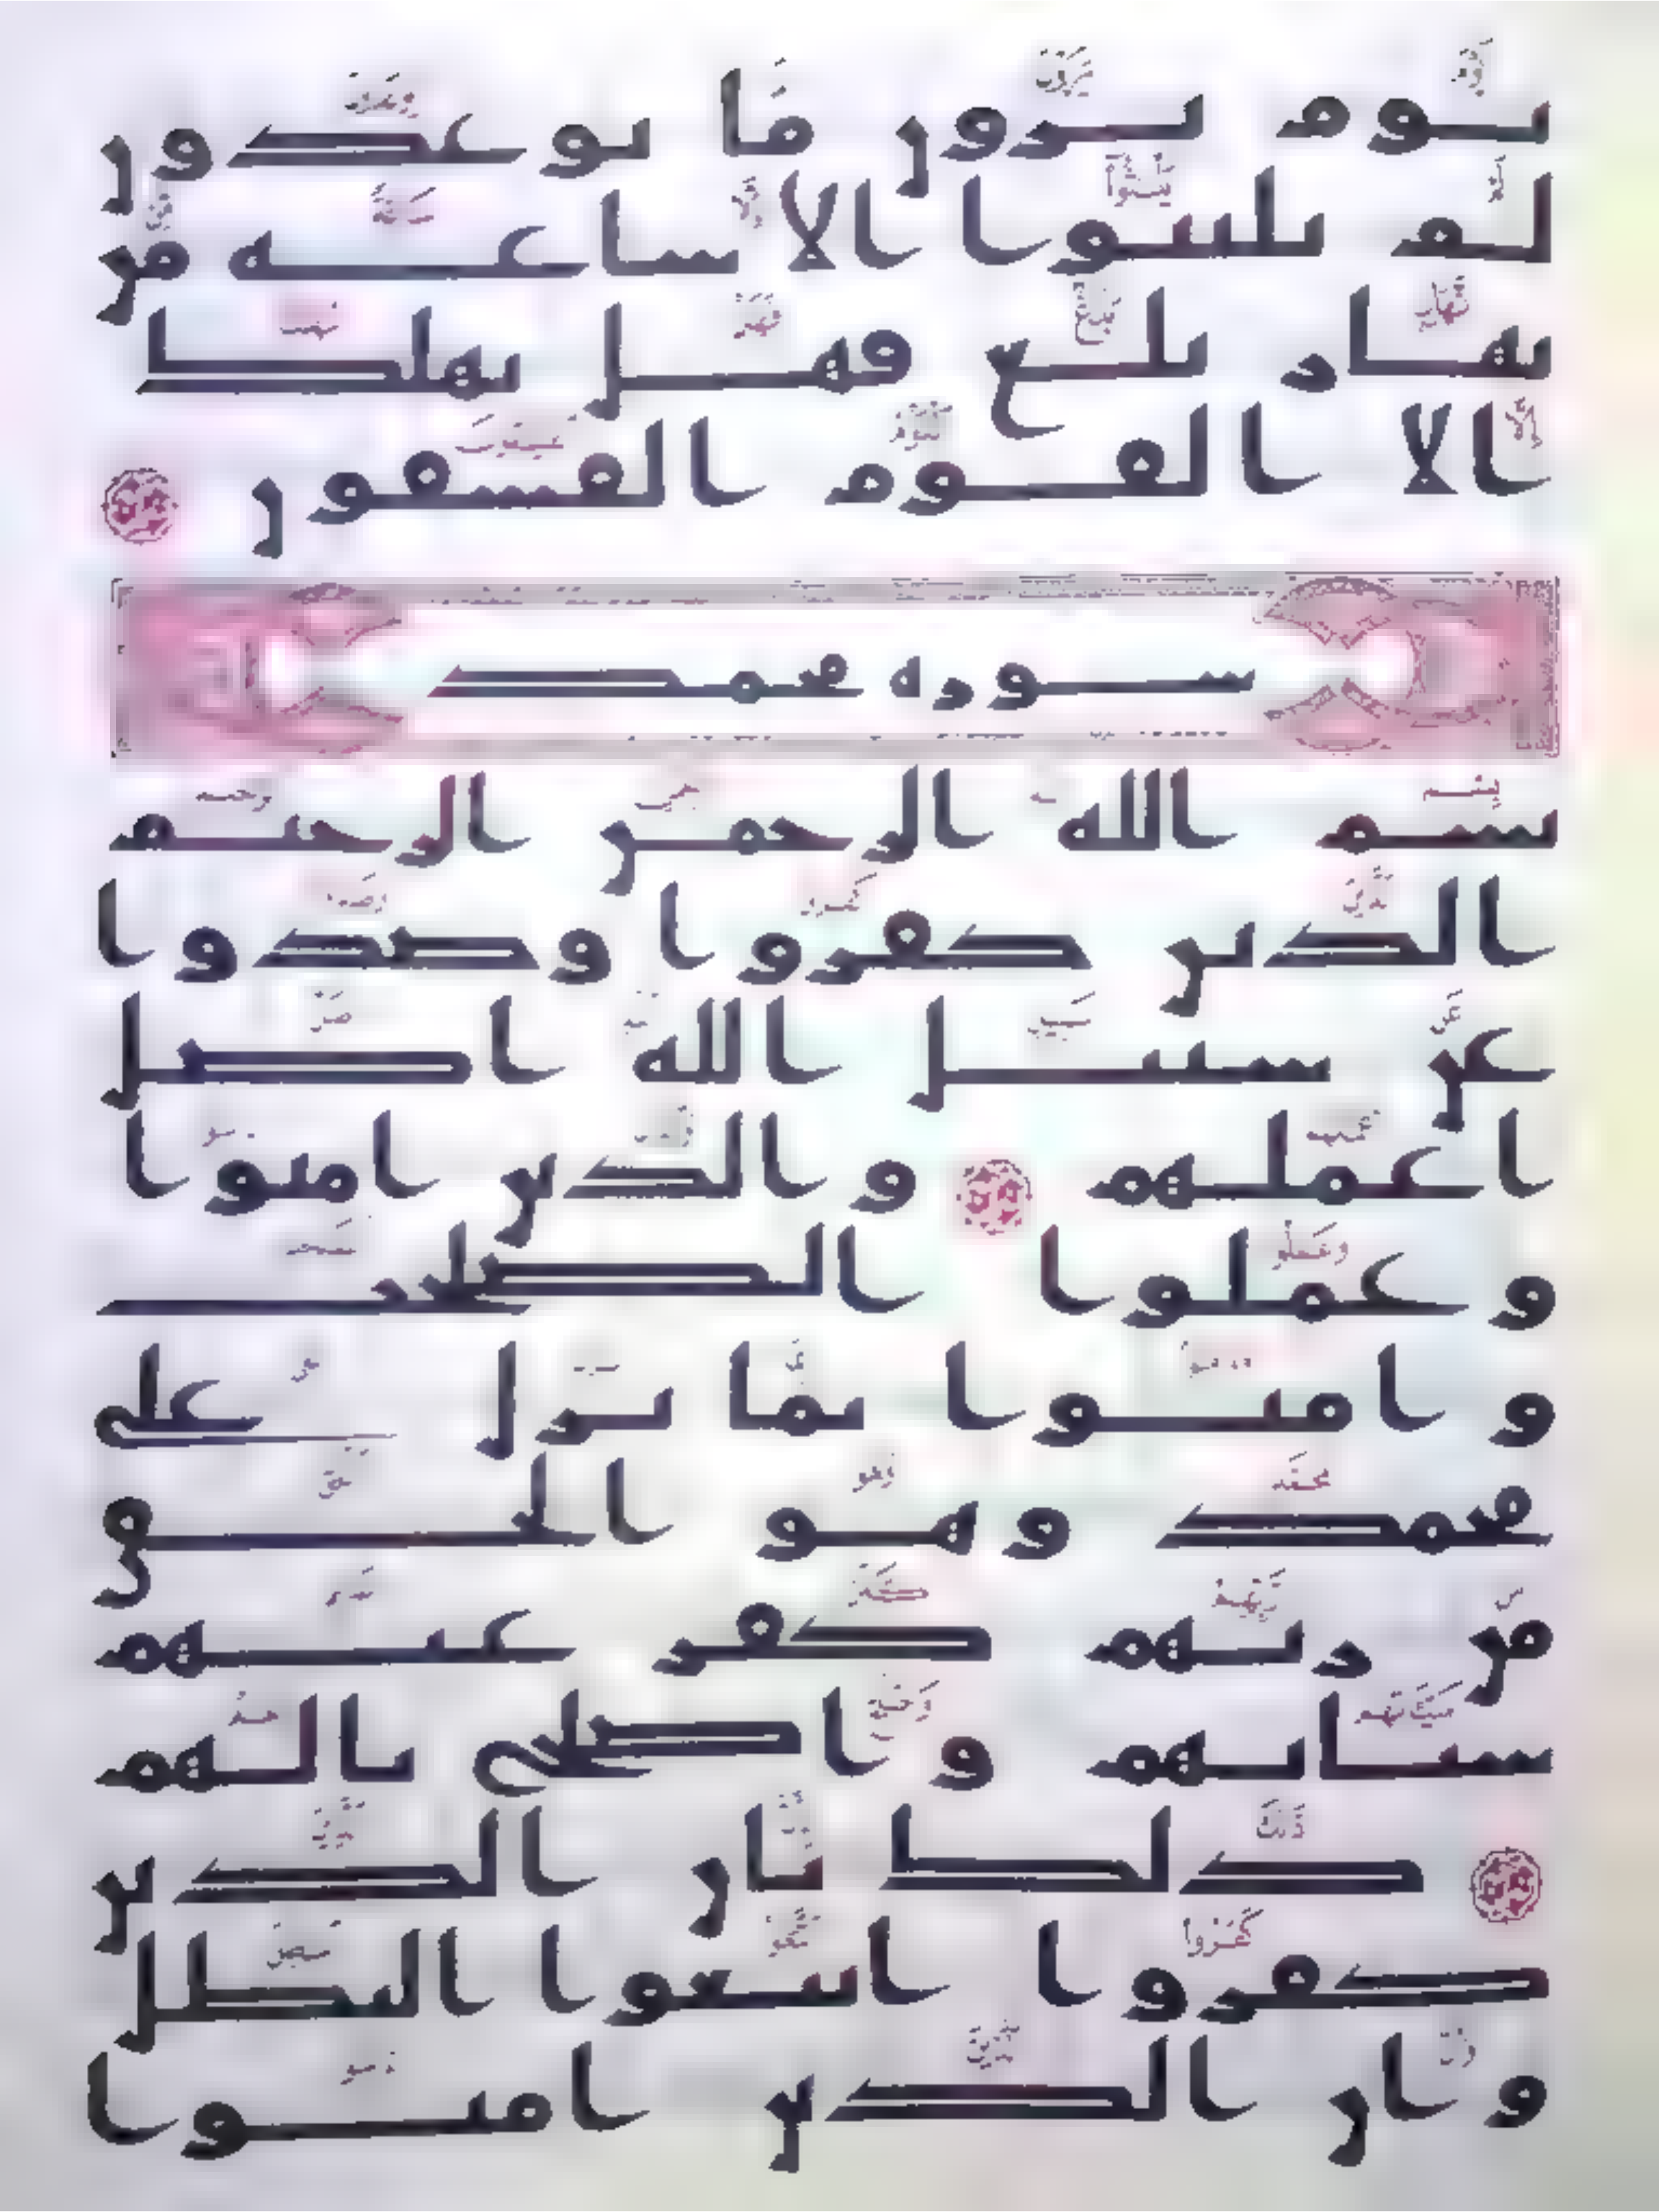 يوم يرون ما يوعدون
لم يلبثوا الا ساعه من
نهار بلغ فهل يهلك
الا القوم الفسقون
سوره محمد
بسم الله الرحمن الرحيم
الذين كفروا وصدوا
عن سبيل الله اضل
اعملهم والذين امنوا
وعملوا الصلحت
وامنوا بما نزل على
محمد وهو الحق
من ربهم كفر عنهم
سياتهم واصلح بالهم
ذلك بان الذين
كفروا اتبعوا البطل
وان الذين امنوا